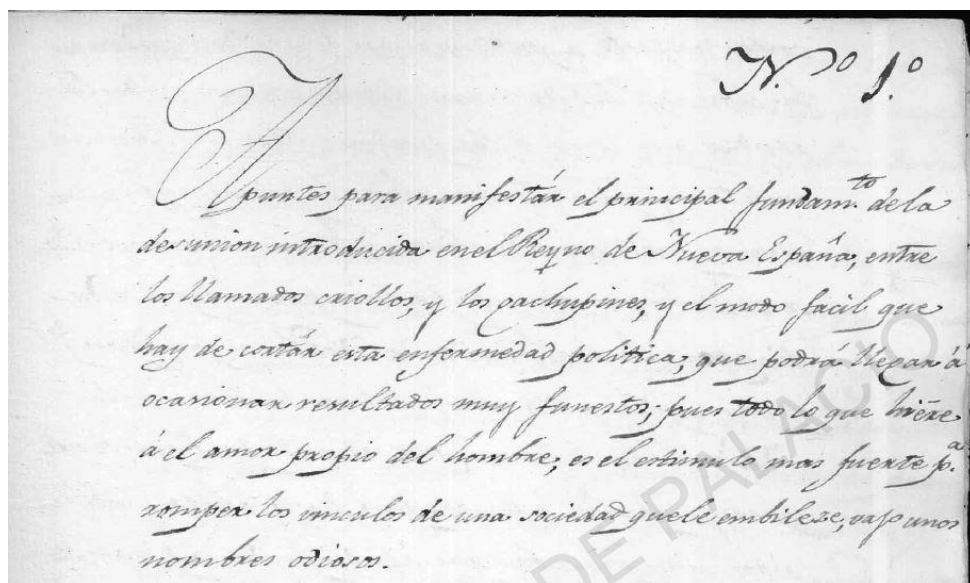 N.º 1.º
Apuntes para manifestár el principal fundam.to de la
desunion introducida en el Reyno de Nueva España, entre
los llamados criollos, y los gachupines, y el modo facil que
hay de cortár esta enfermedad politica, que podrá llegar á
ocasionar resultados muy funestos; pues todo lo que hiére
á el amor propio del hombre, es el estimulo mas fuerte p.a
romper los vinculos de una sociedad que le embileze, vajo unos
nombres odiosos.
DE PALACIO